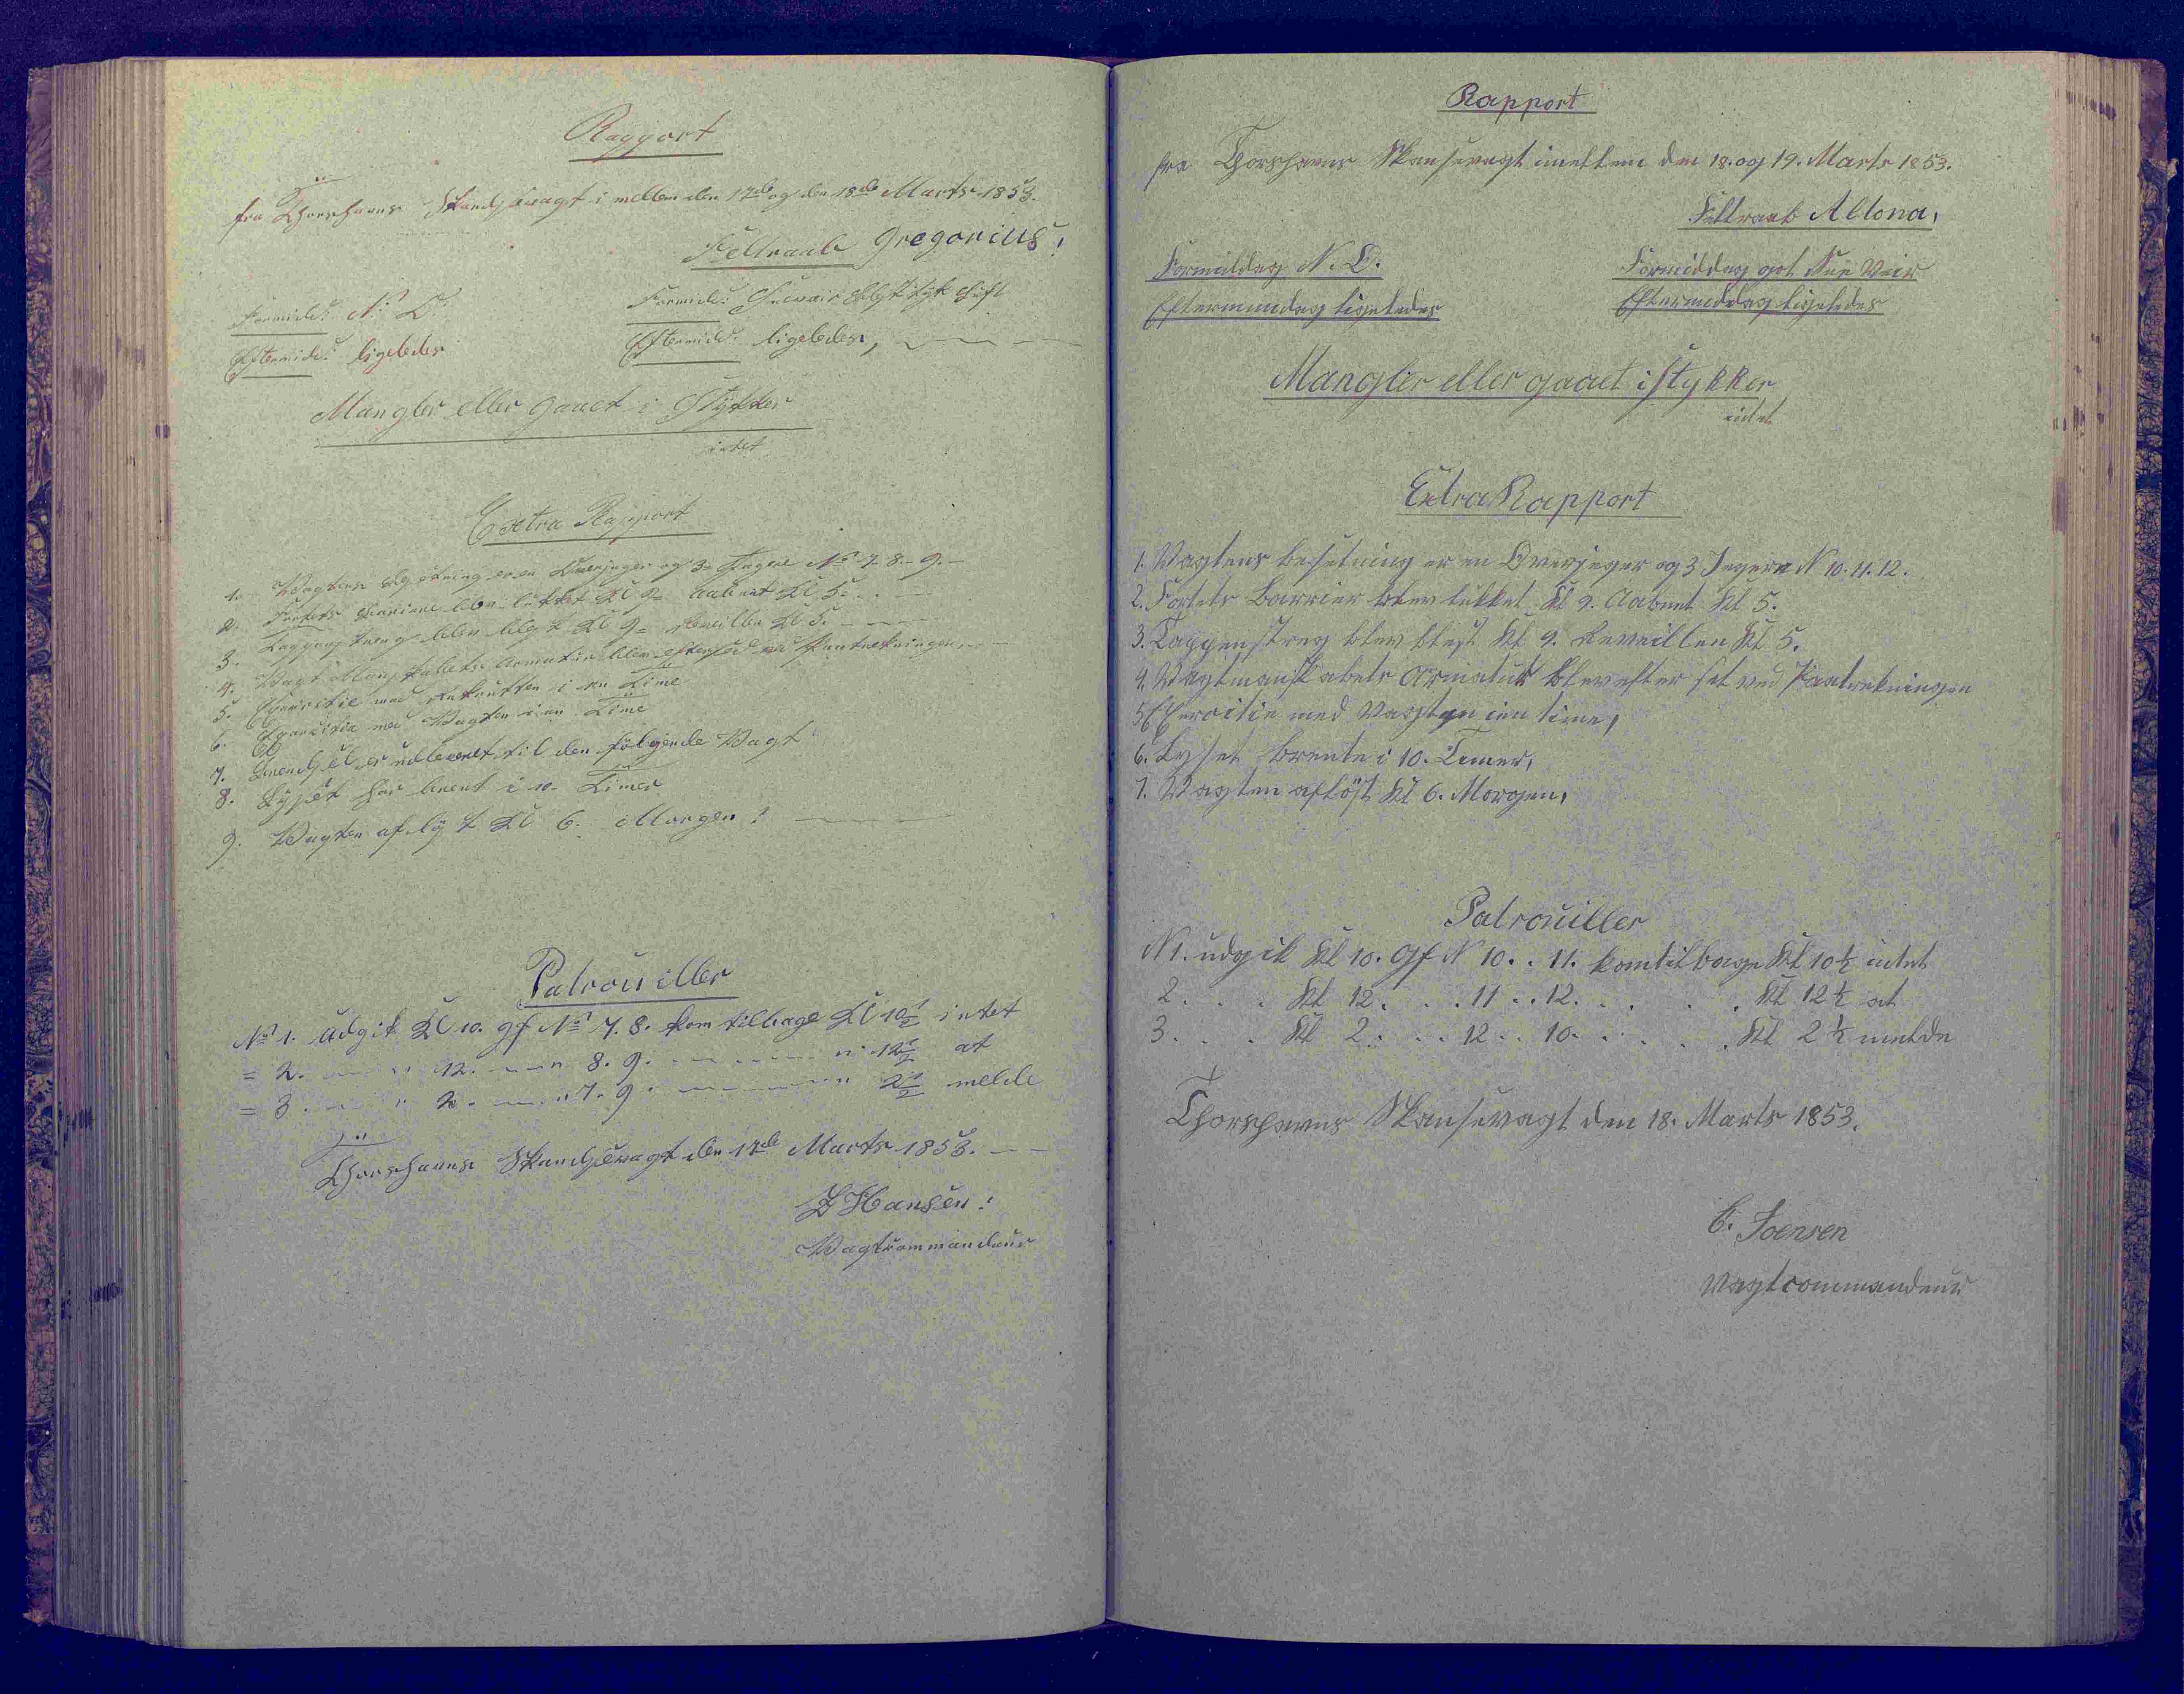 Rapport
fra Thorshavns Skandsevagt i mellem den 17de og den 18de Marts 1853.
Feltraab Gregorius!
Formidd: N. O.
Formid:
Eftermidd: ligeledes
Eftermidd: ligeledes,
Mangler eller gaaet i Stykker
intet
Extra Rapport
1. Vagtens Besætning er en Overjæger og 3 Jægere No 7. 8. 9.
2. Fortets Barriere blev lukket Kl 9 aabnet Kl 5.
3. Tappenstreg blev blæst Kl 9 Reveillen Kl 5.
4. Vagt Mandskabets Armatur blev efterseet ved Paatrækningen,
5. Exersitie med Rekrutten i en Time
6. Exersitie med Vagten i en Time
7. Brændsel er udleveret til den fölgende Vagt
8. Lyset har brent i 10 Timer
9. Vagten aflöst Kl 6. Morgen!
Patrouiller
No 1. Udgik Kl 10. gf No 7. 8. kom tilbage Kl 10½ intet
= 2. " 12. " 8. 9. " 12½ at
= 3. " 2. " 7. 9. " 2½ melde
Thorshavns Skandsevagt den 17de Marts 1853.
Hansen!
Vagtcommandeur
Rapport
fra Thorshavns Skansevagt imellem den 18. og 19. Marts 1853.
Feltraab Altona,
Formiddag N. O.
Formiddag got Veir
Eftermiddag ligeledes
Eftermiddag ligeledes
Mangler eller gaaet i stykker
intet
Extra Rapport
1. Vagtens besetning er en Overjeger og 3 Jegere N 10. 11. 12.
2. Fortets Barrier blev lukket Kl 9. Aabnet Kl 5.
3. Tappenstreg blev blest Kl 9. Reveillen Kl 5.
4. Vagtmanskabets Armatur blev efter set ved Paatrekningen
5 Exersitie med Vagten i en time,
6. Lyset brente i 10. Timer,
7. Vagten aflöst Kl 6. Morgen,
Patrouiller
N 1. udgik Kl 10. Gf N 10 . . 11. kom tilbage Kl 10½ intet
2 . . . Kl 12 . . . 11 . . 12. . . . . Kl 12½ at
3 . . . Kl 2 . . . 12 . . 10 . . . . . Kl 2½ melde
Thorshavns Skansevagt den 18. Marts 1853.
Joensen
Vagtcommandeur